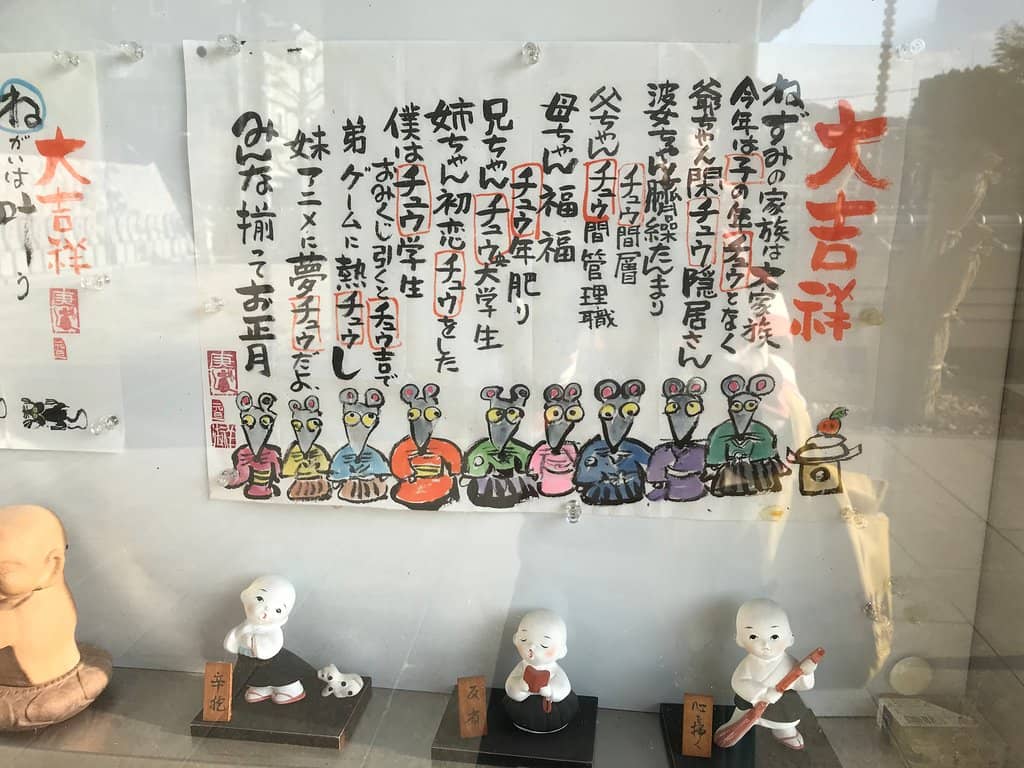 大吉祥
ねずみの家族は大家族
今年は子の年チュウとなく
爺ちゃん閑チュウ隠居さん
婆ちゃん臍繰たんまり
チュウ間層
父ちゃんチュウ間管理職
母ちゃん福福
チュウ年肥り
兄ちゃんチュウ大学生
姉ちゃん初恋チュウをした
僕はチュウ学生
おみくじ引くとチュウ吉で
弟ゲームに熱チュウし
妹アニメに夢チュウだよ、
みんな揃ってお正月
大吉祥
ねがいは叶う
辛抱
反省